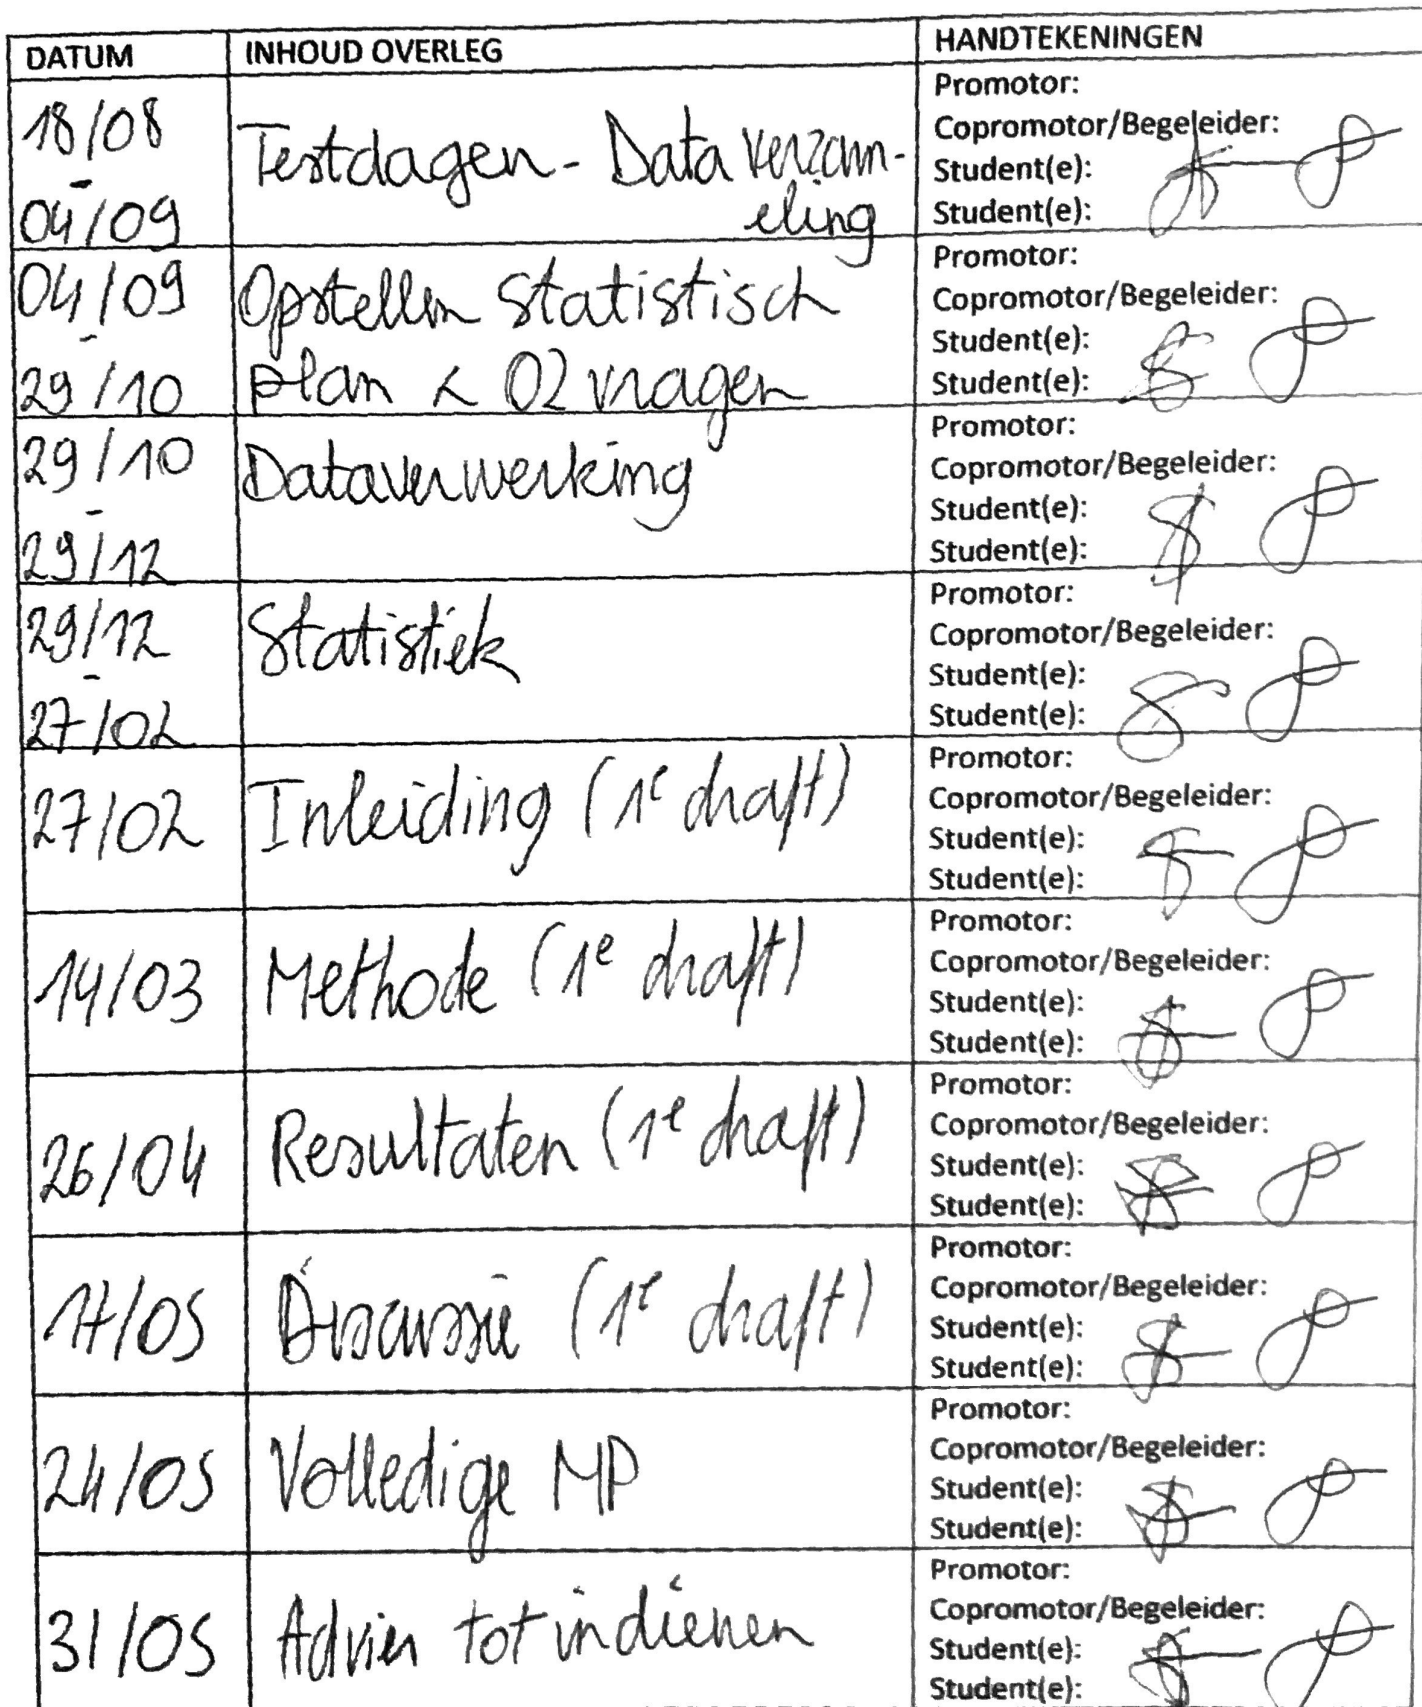 DATUM INHOUD OVERLEG HANDTEKENINGEN
18/08
-
04/09
Testdagen - Data verzam-
eling
Promotor:
Copromotor/Begeleider:
Student(e):
Student(e):
04/09
-
29/10
Opstellen statistisch
plan & O2 vragen
Promotor:
Copromotor/Begeleider:
Student(e):
Student(e):
29/10
-
29/12
Dataverwerking
Promotor:
Copromotor/Begeleider:
Student(e):
Student(e):
29/12
-
27/02
Statistiek
Promotor:
Copromotor/Begeleider:
Student(e):
Student(e):
27/02
Inleiding (1e draft)
Promotor:
Copromotor/Begeleider:
Student(e):
Student(e):
14/03
Methode (1e draft)
Promotor:
Copromotor/Begeleider:
Student(e):
Student(e):
26/04
Resultaten (1e draft)
Promotor:
Copromotor/Begeleider:
Student(e):
Student(e):
17/05
Discussie (1e draft)
Promotor:
Copromotor/Begeleider:
Student(e):
Student(e):
24/05
Volledige MP
Promotor:
Copromotor/Begeleider:
Student(e):
Student(e):
31/05
Advies tot indienen
Promotor:
Copromotor/Begeleider:
Student(e):
Student(e):